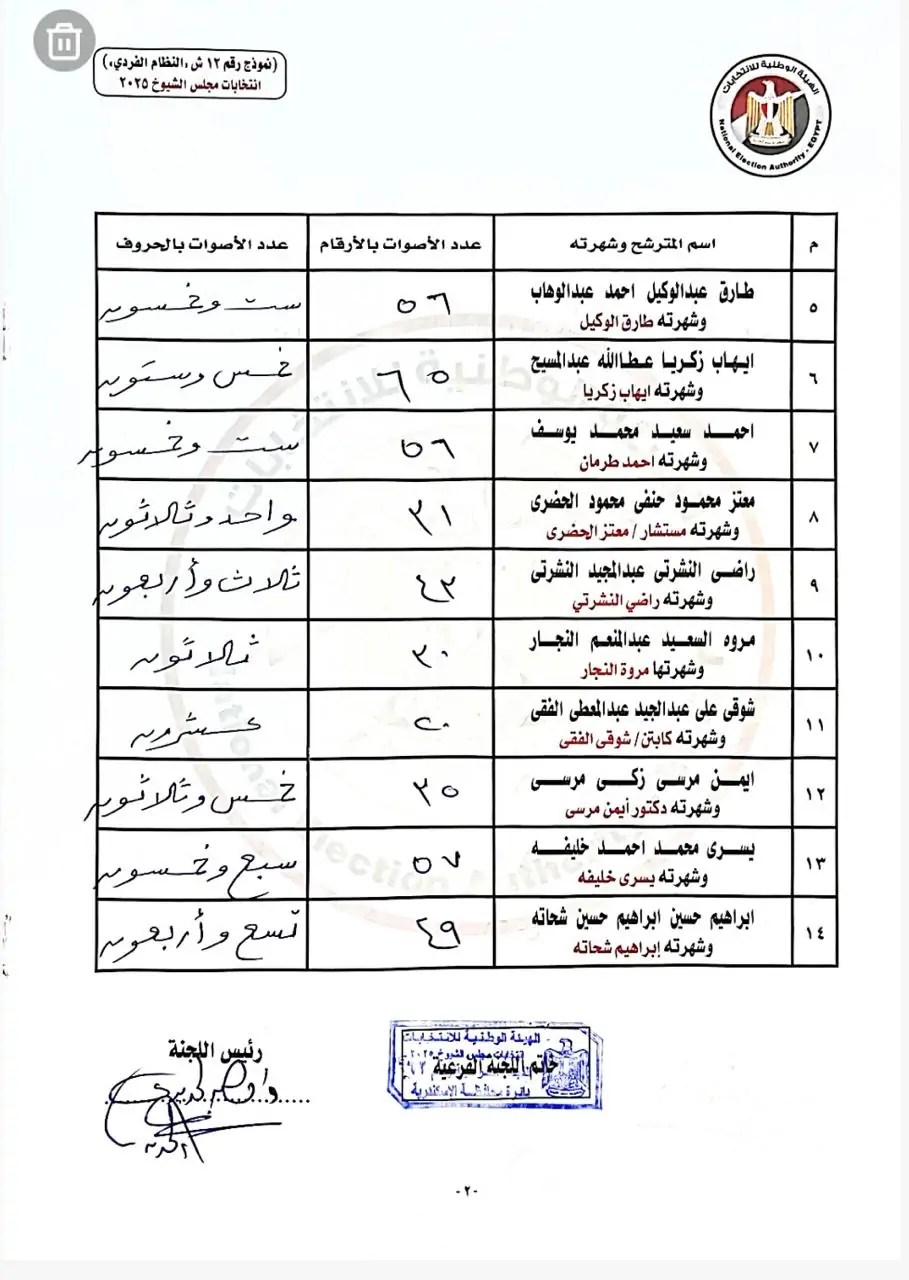 (نموذج رقم ١٢ ش «النظام الفردي»)
انتخابات مجلس الشيوخ ٢٠٢٥
الهيئة الوطنية للانتخابات
National Election Authority - EGYPT
م اسم المترشح وشهرته عدد الأصوات بالأرقام عدد الأصوات بالحروف
٥ طارق عبدالوكيل احمد عبدالوهاب ٥٦ ست وخمسون
وشهرته طارق الوكيل
٦ ايهاب زكريا عطاالله عبدالمسيح ٦٥ خمس وستون
وشهرته ايهاب زكريا
٧ احمد سعيد محمد يوسف ٥٦ ست وخمسون
وشهرته احمد طرمان
٨ معتز محمود حنفى محمود الحضرى ٣١ واحد وثلاثون
وشهرته مستشار / معتز الحضرى
٩ راضى النشرتى عبدالمجيد النشرتى ٤٣ ثلاث وأربعون
وشهرته راضي النشرتي
١٠ مروه السعيد عبدالمنعم النجار ٣٠ ثلاثون
وشهرتها مروة النجار
١١ شوقى على عبدالجيد عبدالمعطى الفقى ٢٠ عشرون
وشهرته كابتن/ شوقى الفقى
١٢ ايمن مرسى زكى مرسى ٣٥ خمس وثلاثون
وشهرته دكتور أيمن مرسى
١٣ يسرى محمد احمد خليفه ٥٧ سبع وخمسون
وشهرته يسرى خليفه
١٤ ابراهيم حسين ابراهيم حسين شحاته ٤٩ تسع وأربعون
وشهرته إبراهيم شحاته
رئيس اللجنة
الهيئة الوطنية للانتخابات
انتخابات مجلس الشيوخ ٢٠٢٥
خاتم اللجنة الفرعية
دائرة محافظة الإسكندرية
-٢-